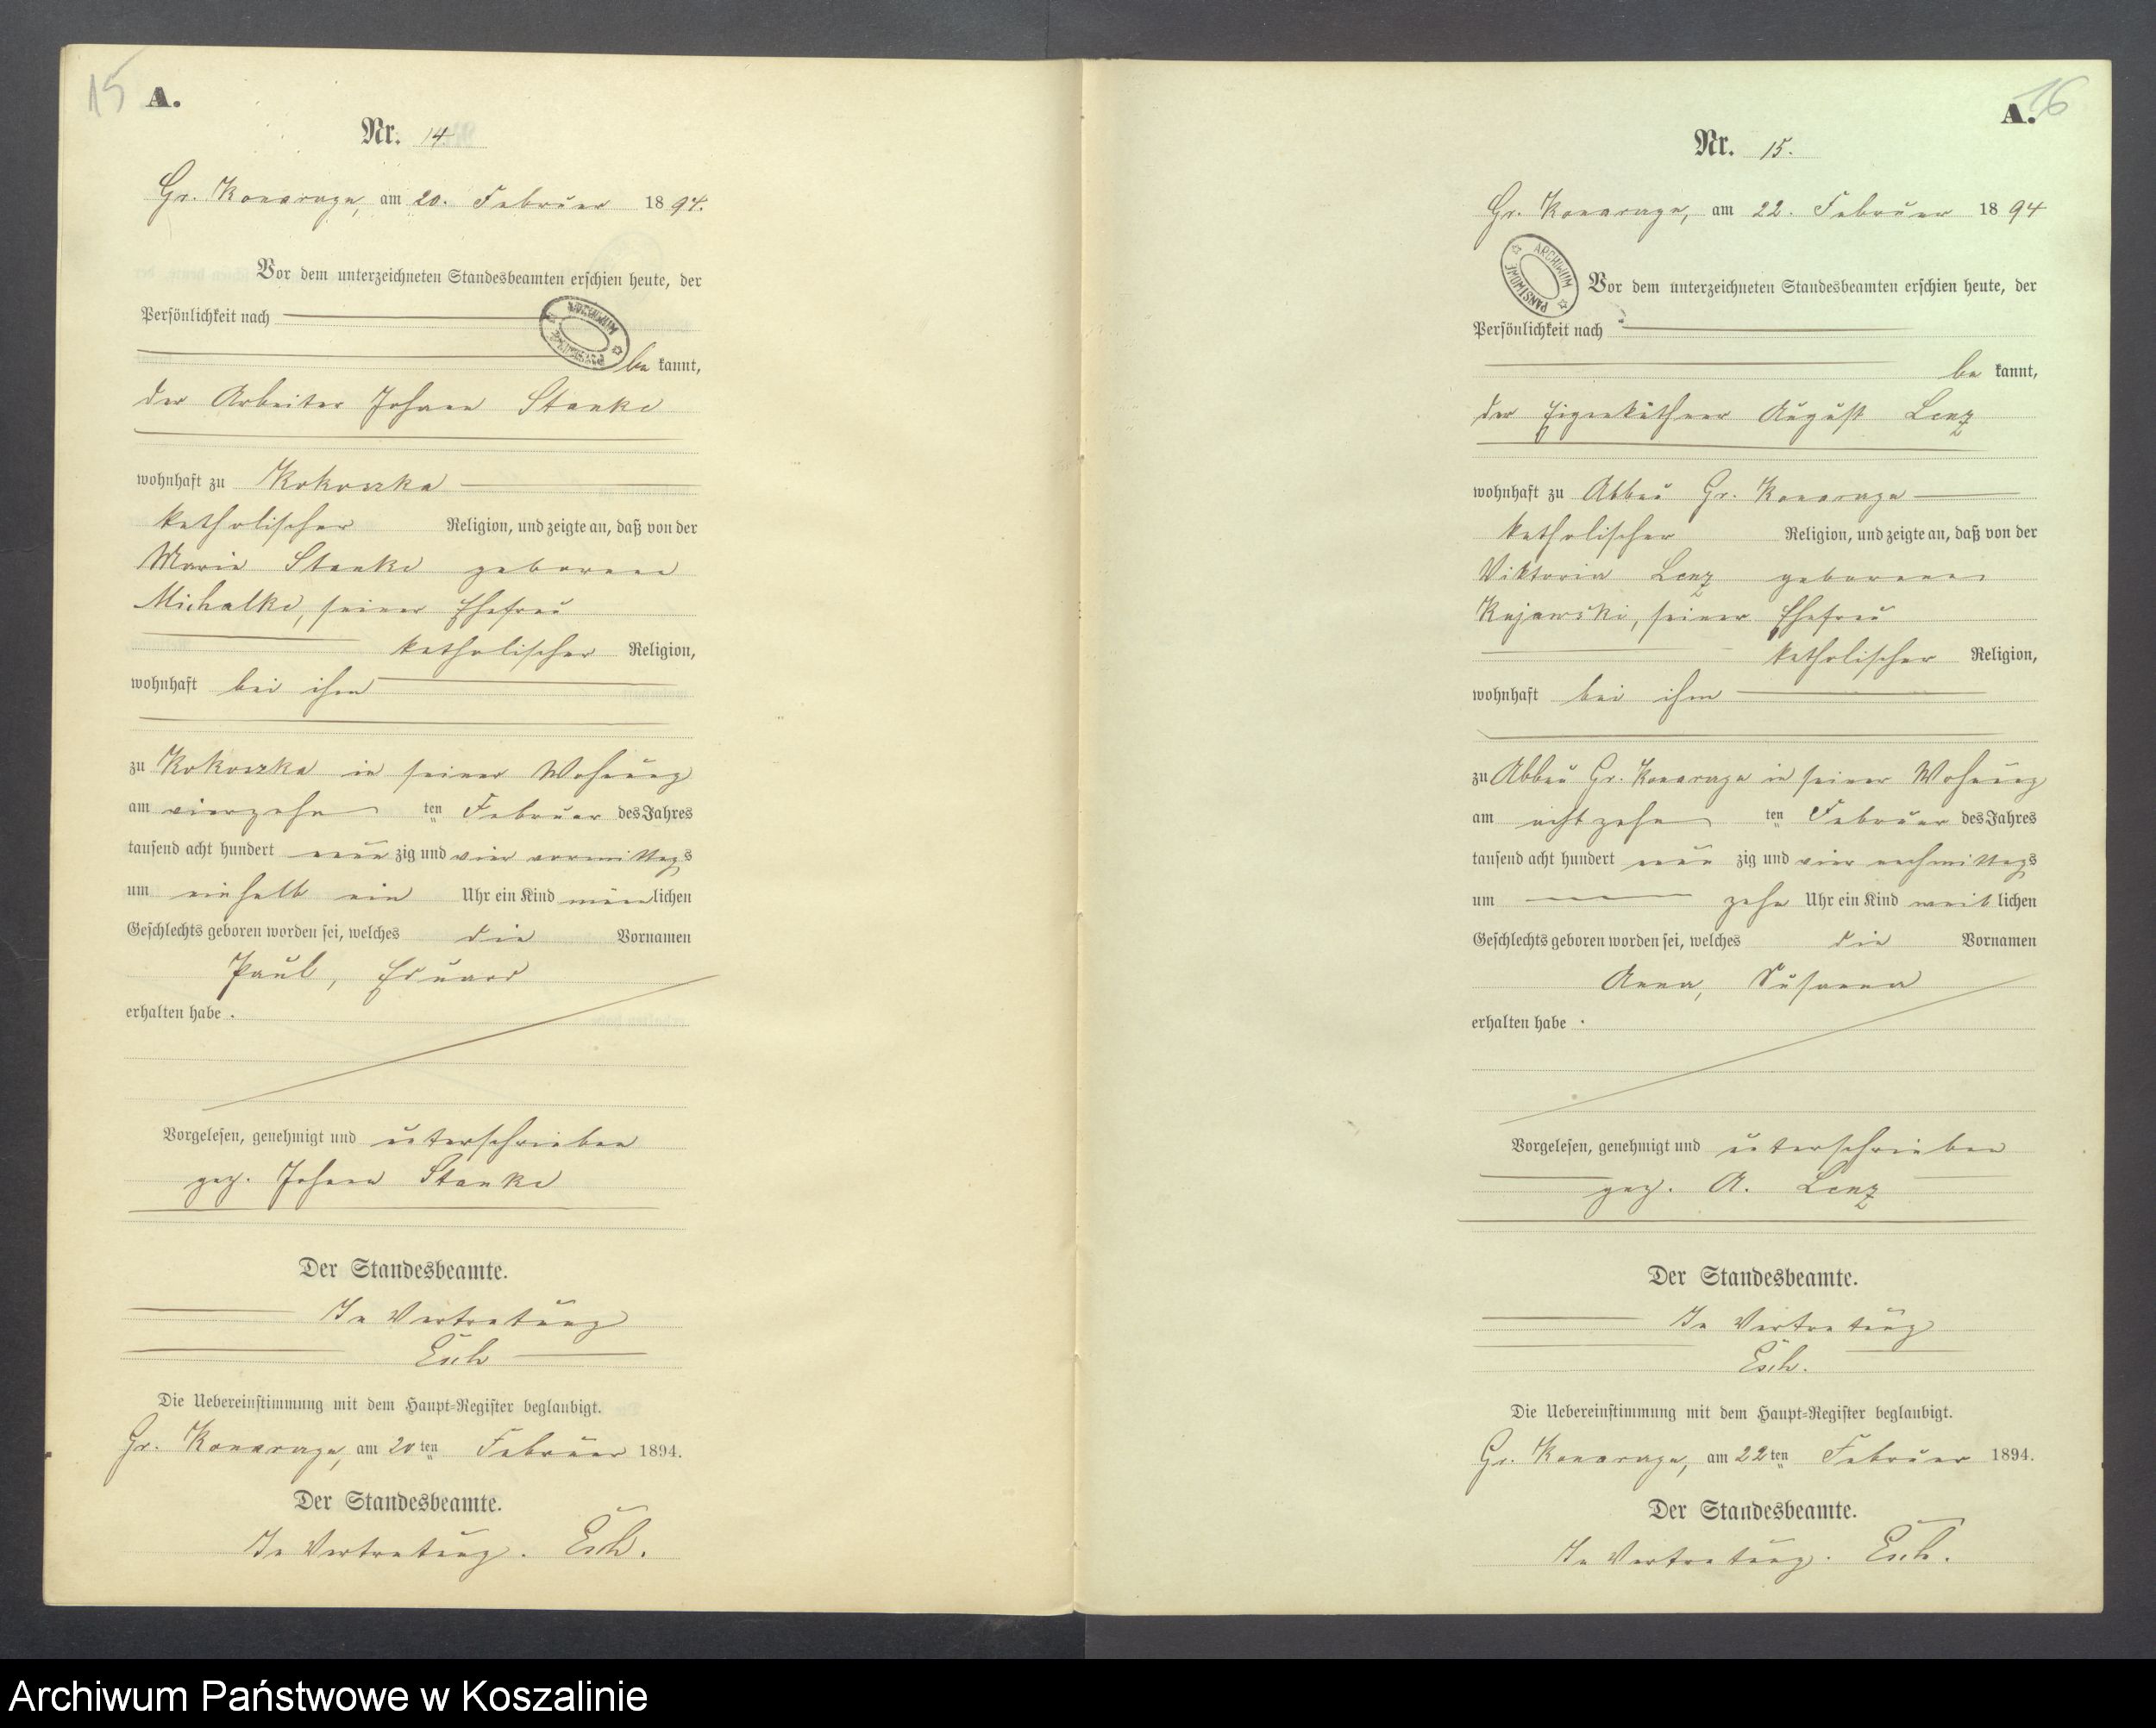 15
A.
Nr. 14.
Gr. Konarzyn, am 20. Februar 1894.
Vor dem unterzeichneten Standesbeamten erschien heute, der
Persönlichkeit nach
ARCHIWUM
PAŃSTWOWE
be kannt,
der Arbeiter Johann Stanke
wohnhaft zu Kokoszka
katholischer Religion, und zeigte an, daß von der
Marie Stanke geborene
Michalke, seiner Ehefrau
katholischer Religion,
wohnhaft bei ihm
zu Kokoszka in seiner Wohnung
am vierzehn ten Februar des Jahres
tausend acht hundert neun zig und vier vormittags
um einhalb ein Uhr ein Kind männlichen
Geschlechts geboren worden sei, welches die Vornamen
Paul, Eduard
erhalten habe.
Vorgelesen, genehmigt und unterschrieben
gez. Johann Stanke
Der Standesbeamte.
In Vertretung
Esch
Die Uebereinstimmung mit dem Haupt-Register beglaubigt.
Gr. Konarzyn, am 20 ten Februar 1894.
Der Standesbeamte.
In Vertretung. Esch.
16
A.
Nr. 15.
Gr. Konarzyn, am 22. Februar 1894
ARCHIWUM
PAŃSTWOWE
Vor dem unterzeichneten Standesbeamten erschien heute, der
Persönlichkeit nach
be kannt,
der Eigenkäthner August Lenz
wohnhaft zu Abbau Gr. Konarzyn
katholischer Religion, und zeigte an, daß von der
Viktoria Lenz geborenen
Kujawski, seiner Ehefrau
katholischer Religion,
wohnhaft bei ihm
zu Abbau Gr. Konarzyn in seiner Wohnung
am achtzehn ten Februar des Jahres
tausend acht hundert neun zig und vier nachmittags
um zehn Uhr ein Kind weiblichen
Geschlechts geboren worden sei, welches die Vornamen
Anna, Susanna
erhalten habe.
Vorgelesen, genehmigt und unterschrieben
gez. A. Lenz
Der Standesbeamte.
In Vertretung
Esch.
Die Uebereinstimmung mit dem Haupt-Register beglaubigt.
Gr. Konarzyn, am 22 ten Februar 1894.
Der Standesbeamte.
In Vertretung. Esch.
Archiwum Państwowe w Koszalinie